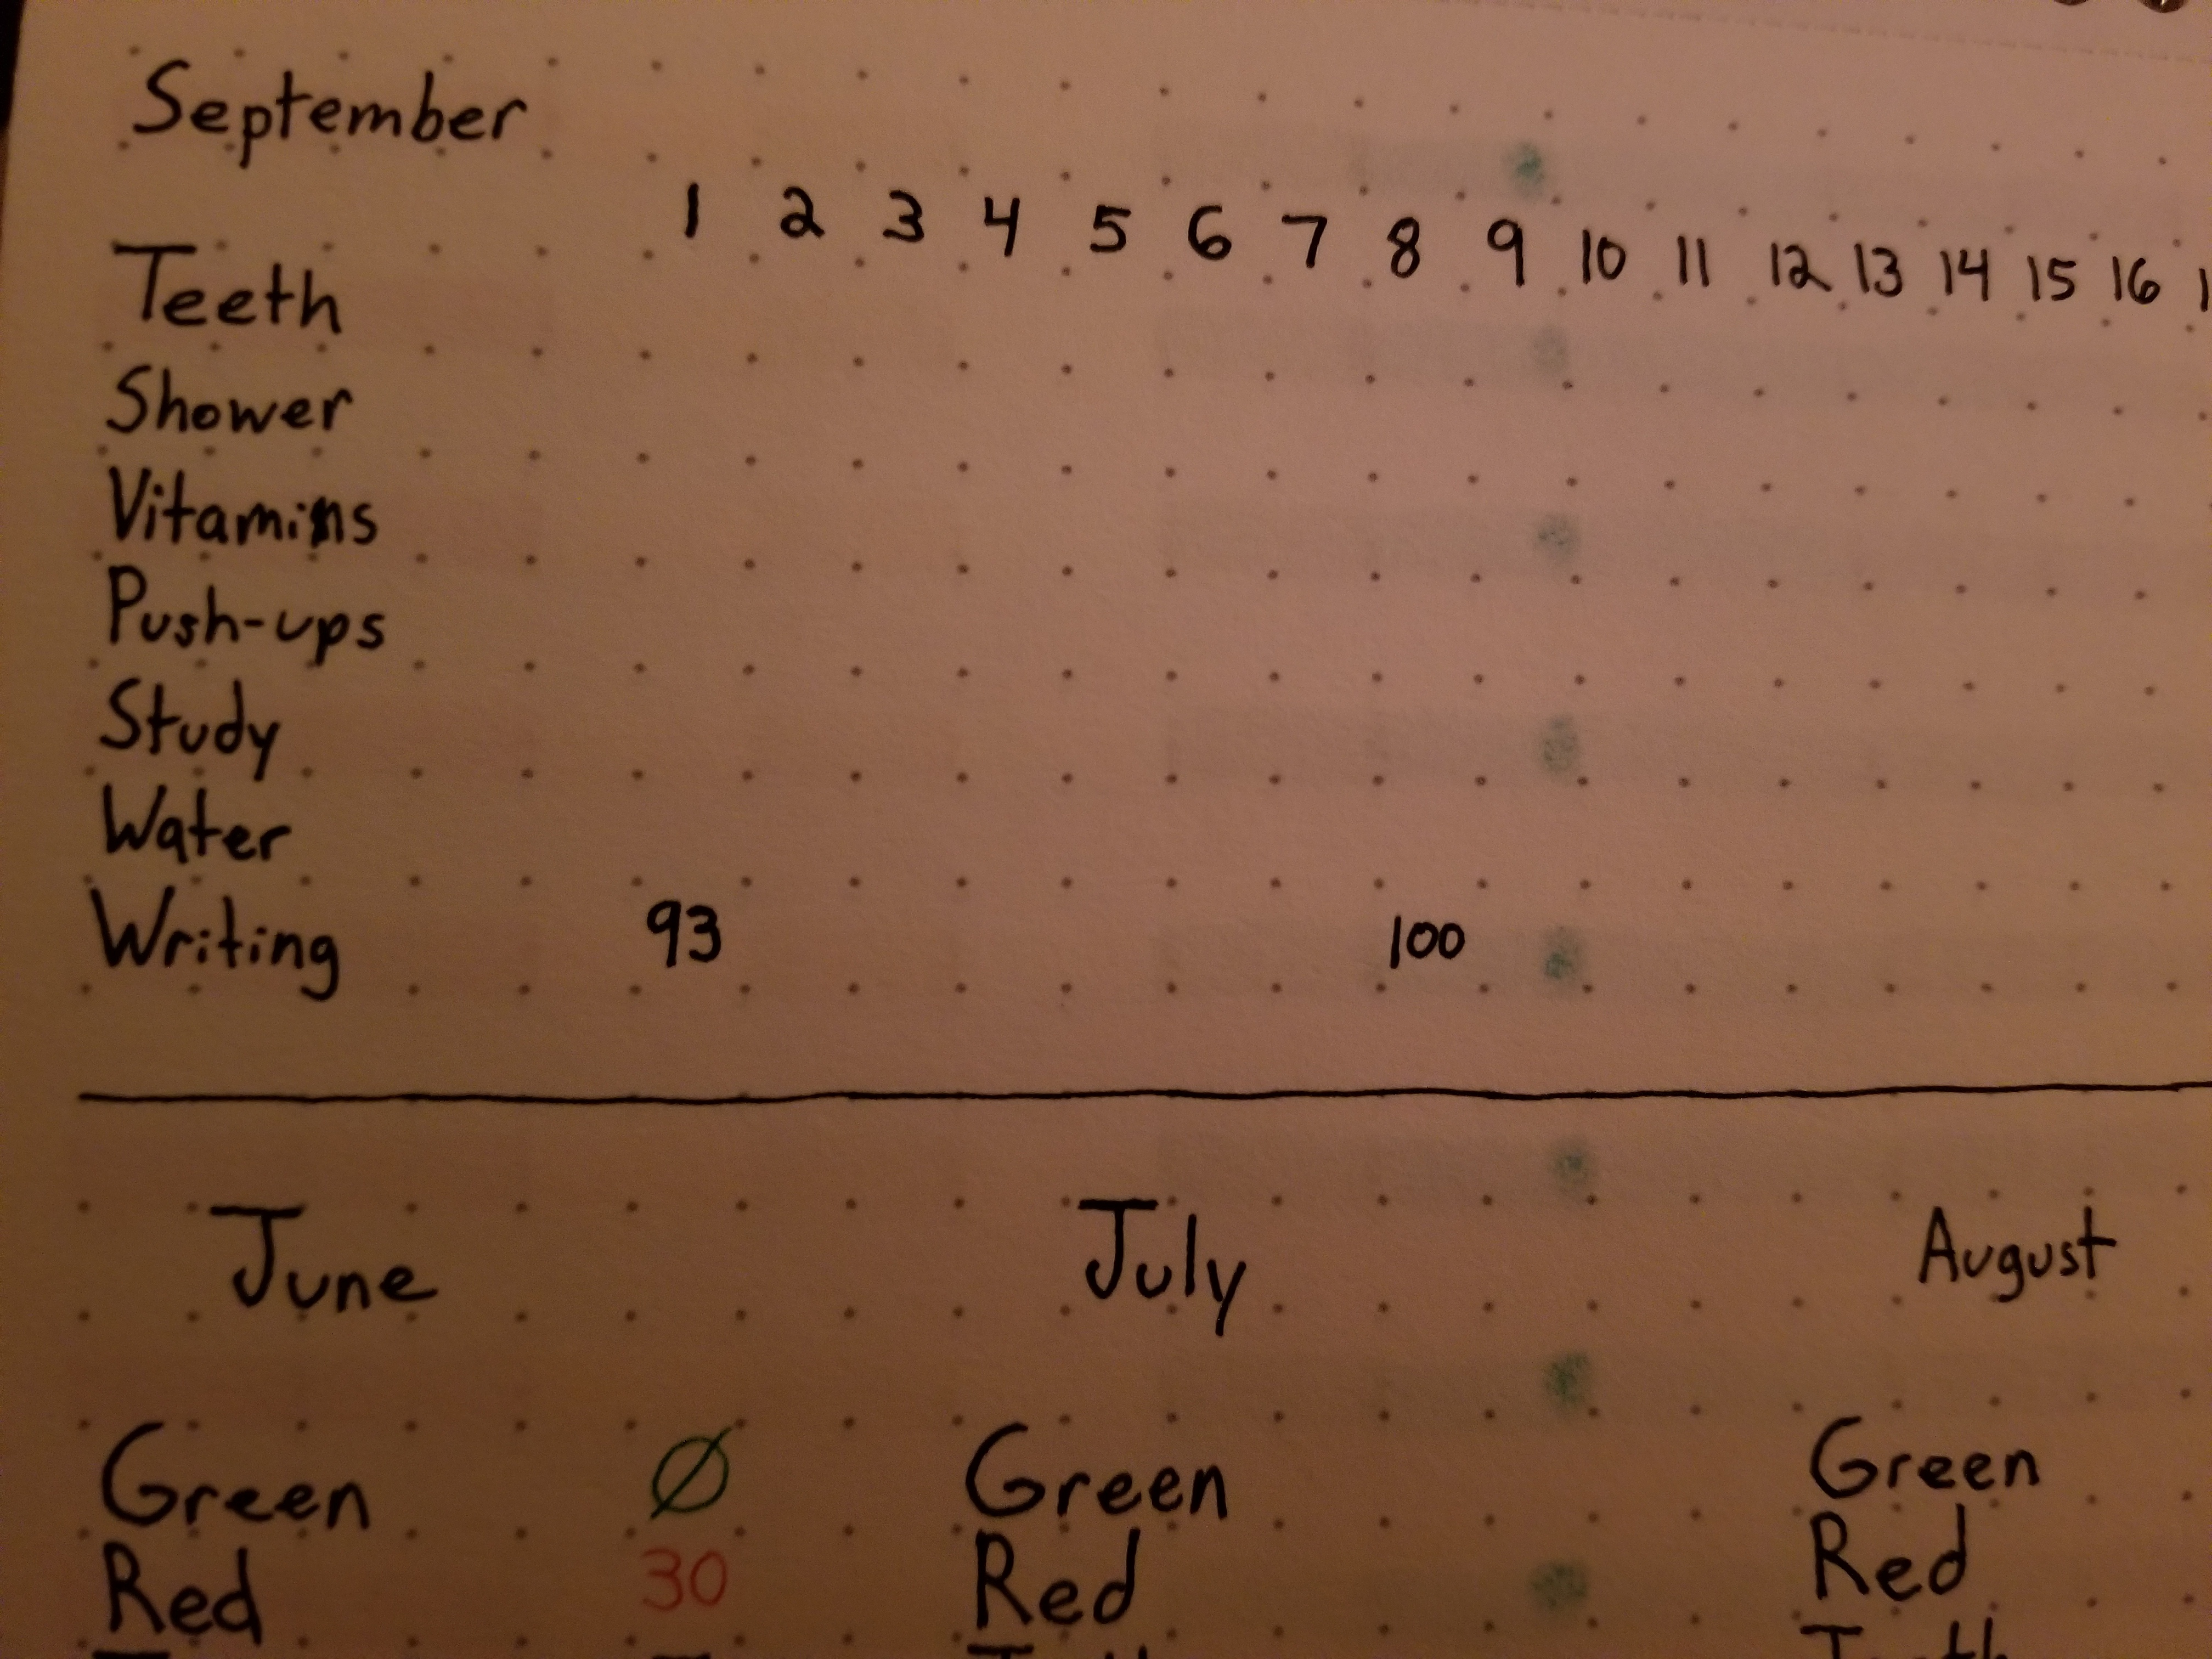 September
1 2 3 4 5 6 7 8 9 10 11 12 13 14 15 16
Teeth
Shower
Vitamins
Push-ups
Study
Water
Writing 93 100
June July August
Green Ø Green Green
Red 30 Red Red